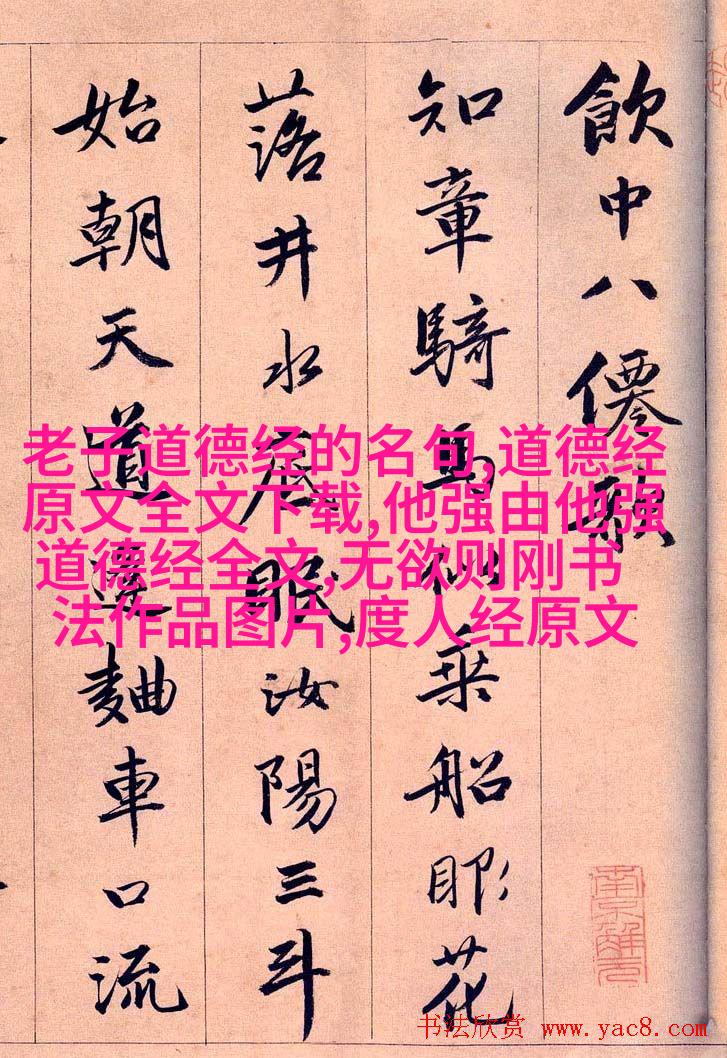 飲中八僊歌
知章騎馬似乘船眼花
落井水底眠汝陽三斗
始朝天道逢麯車口流
老子道德经的名句,道德经
原文全文下载,他强由他强
道德经全文,无欲则刚书
法作品图片,度人经原文
南京解元
书法欣赏 www.yac8.com